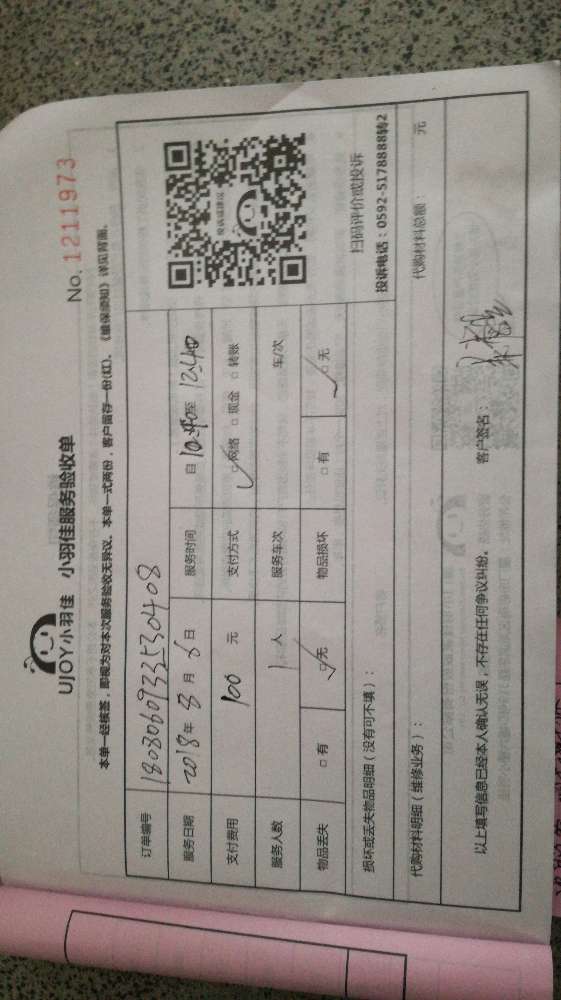 UJOY小羽佳 小羽佳服务验收单
No. 1211973
本单一经核签，即视为对本次服务验收无异议。本单一式两份，客户留存一份(红)。《维保须知》详见背面。
订单编号 180806093323530408
服务日期 2018年 8月 6日 服务时间 自 10:40至 12:40
支付费用 100 元 支付方式 ☑网络 □现金 □转账
服务人数 1 人 服务车次 车/次
物品丢失 □有 ☑无 物品损坏 □有 ☑无
扫码评价或投诉
投诉电话：0592-5178888转2
损坏或丢失物品明细（没有可不填）：
代购材料明细（维修业务）： 代购材料总额： 元
以上填写信息已经本人确认无误，不存在任何争议纠纷。 客户签名：